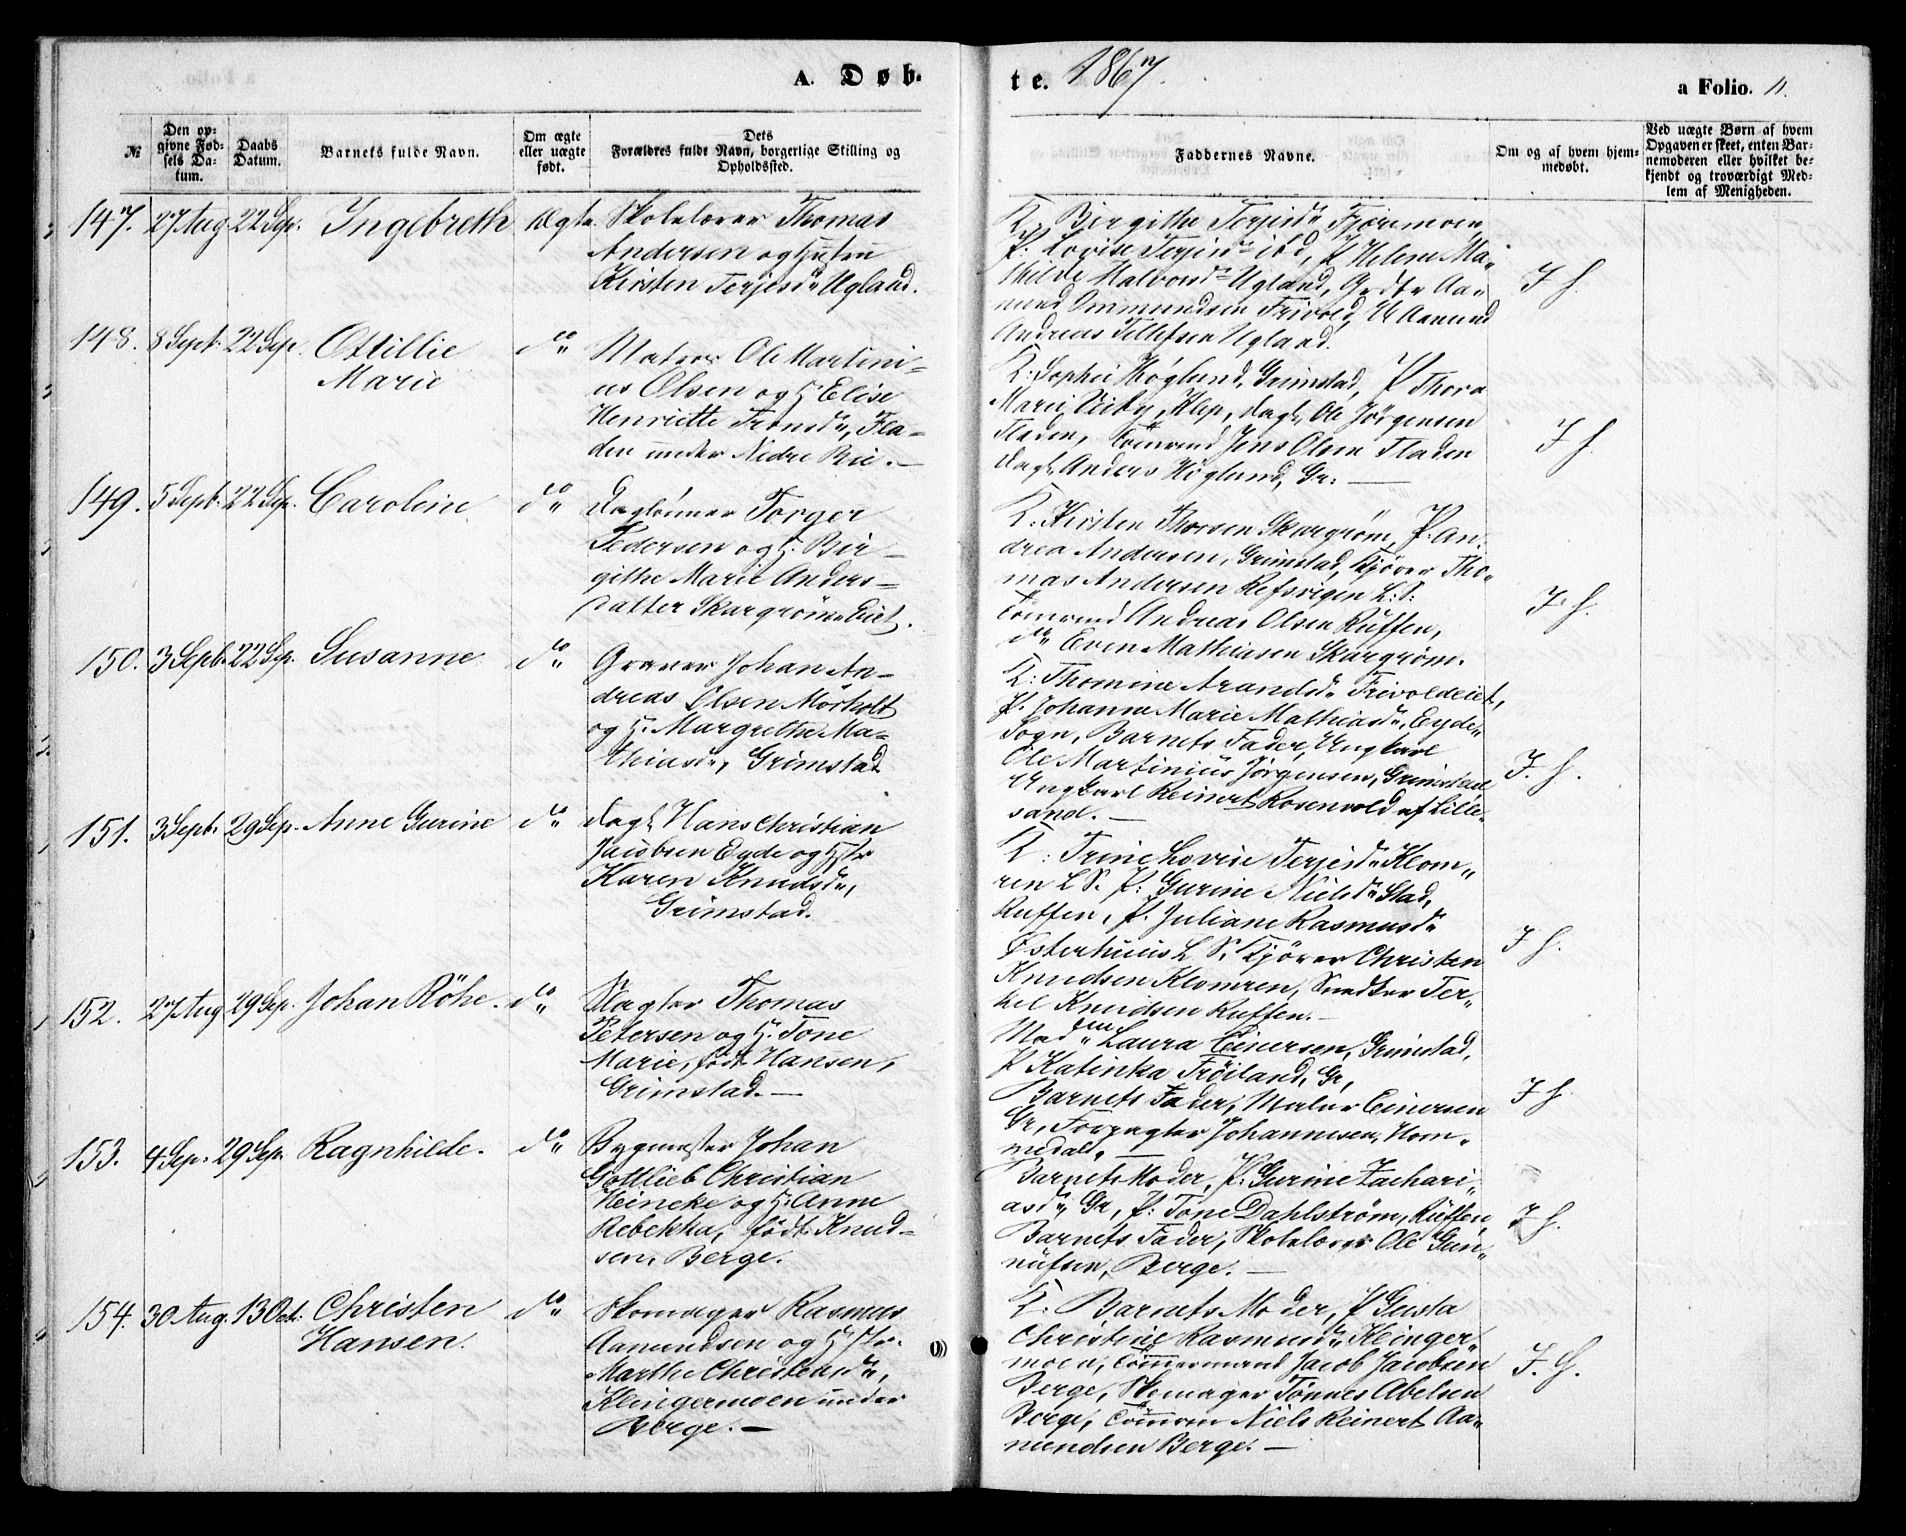 A. Døb-
te. 1867.
a Folio. 11.
№
Den op-
givne Fød-
sels Da-
tum.
Daabs
Datum.
Barnets fulde Navn.
Om ægte
eller uægte
født.
Dets
Forældres fulde Navn, borgerlige Stilling og
Opholdssted.
Faddernes Navne.
Om og af hvem hjem-
medøbt.
Ved uægte Børn af hvem
Opgaven er skeet, enten Bar-
nemoderen eller hvilket be-
kjendt og troværdigt Med-
lem af Menigheden.
147. 27 Aug 22 Sep. Ingebreth Ægte. Skolelærer Thomas
Andersen og Hustru
Kirsten Terjesdr Ugland.
K. Birgithe Terjesdr Fjæremoen
P. Lovise Terjesdr ibd, P Helene Ma-
thilde Halvorsdr Ugland, Grdbr Aa-
mund Ommundsen Frivold, U Aanund
Andreas Tellefsen Ugland.
J H.
148. 8 Sept: 22 Sep. Ottillie
Marie
do
Matros Ole Martini-
us Olsen og H. Elise
Henriette Fransdr, Fla-
den under Nedre Bie. —
K: Sophie Höglund, Grimstad, P Thora
Marie Viiby, Klep, dagl. Ole Jörgensen
Fladen, Tömrmd Jens Olsen Fladen
dagl. Anders Höglund, Gr. —
J H.
149. 5 Sept. 22 Sep. Caroline do Daglönner Torger
Pedersen og H. Bir-
githe Marie Anders-
datter Skargrömseiet.
K: Kirsten Thorsen Skargröm, P. An-
drea Andersen, Grimstad, Kjörer Tho-
mas Andersen Refsvigen L.S.
Tömrmd Andreas Olsen Ruffen,
do Even Mathiasen Skargröm.
J. H.
150. 3 Sept. 22 Sep. Susanne do Graver Johan An-
dreas Olsen Mörholt
og H. Margrethe Ma-
thiasdr, Grimstad
K: Thomine Aranddr Frivoldeiet,
P. Johanne Marie Mathiasdr, Eyde-
Sogn, Barnets Fader, Ungkarl
Ole Martinius Jörgensen, Grimstad
Ungkarl Reinert Rosenvold af Lille-
sand. —
J. H.
151. 3 Sept. 29 Sep. Anne Gurine do Dagl. Hans Christian
Jacobsen Eyde og Hstr
Karen Knudsdr,
Grimstad.
K: Trine Lovise Terjesdr Klom-
ren L S. P: Gurine Nielsdr Stad,
Ruffen, P. Juliane Rasmusdr
Østerhuus L S. Kjörer Christen
Knudsen Klomren, Snedker Ter-
kel Knudsen Ruffen. —
J H.
152. 27 Aug 29 Sep. Johan Röhe. do Slagter Thomas
Petersen og H. Tone
Marie, födt Hansen,
Grimstad. —
Madm Laura Einersen, Grimstad,
P Katinka Fröiland, Gr,
Barnets Fader, Maler Einersen
Gr, Forpagter Johannesen, Hom-
medal. —
J H.
153. 4 Sep. 29 Sep. Ragnhilde. do Bygmester Johan
Gottlieb Christian
Heineke og H. Anne
Rebekka, födt Knud-
sen, Berge.
Barnets Moder, P. Gurine Zachari-
asdr Gr, P: Tone Dahlström, Ruffen,
Barnets Fader, Skolelærer Ole Gun-
nufsen, Berge. —
J H.
154. 30 Aug. 13 Oct. Christen
Hansen.
do Skomager Rasmus
Aamundsen og Hstr.
Marthe Christensdr,
Klingermoen under
Berge. —
K: Barnets Moder, P Gusta
Christine Rasmusdr Klinger-
moen, Tömmermand Jacob Jacobsen
Berge, Skomager Tönnes Abelsen
Berge, Tömrm Niels Reinert Aa-
mundsen Berge. —
J. H.